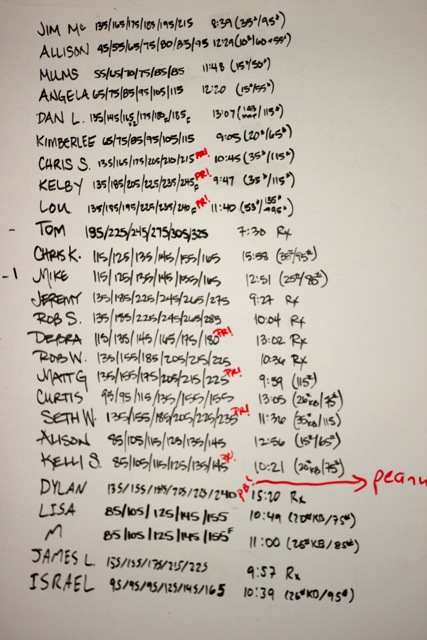 JIM Mc 135/165/175/185/195/215 8:39 (35#/95#)
ALLISON 45/55/65/75/80/85/95 12:29 (10#/60→55#)
MUMS 55/65/70/75/85/85 11:48 (15#/50#)
ANGELA 65/75/85/95/105/115 12:20 (15#/55#)
DAN L. 135/145/165/175/185F/185F 13:07 (/115#)
KIMBERLEE 65/75/85/95/105/115 9:05 (20#/65#)
CHRIS S. 135/165/175/205/210/215 PR! 10:45 (35#/115#)
KELBY 135/185/205/225/235/245F PR! 9:47 (35#/115#)
LOU 135/195/195/225/235/240F PR! 11:40 (53#/135#
- TOM 185/225/245/275/305/325 7:30 Rx
CHRIS K. 115/125/135/145/155/165 15:58 (35#/95#)
-1 MIKE 115/125/135/145/155/165 12:51 (25#/85#)
JEREMY 135/185/225/245/265/275 9:27 Rx
ROB S. 135/185/225/245/265/285 10:04 Rx
DEBRA 115/135/145/165/175/180 PR! 13:02 Rx
ROB W. 135/155/185/205/215/225 10:36 Rx
MATT G 135/155/175/205/215/225 PR! 9:59 (115#)
CURTIS 95/95/115/135/155/155 13:05 (26#KB/75#)
SETH W. 135/155/185/205/225/235 PR! 11:36 (35#KB/115)
ALISON 85/105/115/125/135/145 12:56 (15#/65#)
KELLI S. 85/105/115/125/135/145 PR! 10:21 (20#KB/75#)
DYLAN 135/155/185/205/205/240 PB! 15:20 Rx → peanu
LISA 85/105/125/145/155 10:49 (20#KB/75#)
M 85/105/125/145/155F 11:00 (26#KB/85#)
JAMES L. 135/155/175/215/225 9:57 Rx
ISRAEL 95/95/95/125/145/165 10:39 (26#KB/95#)